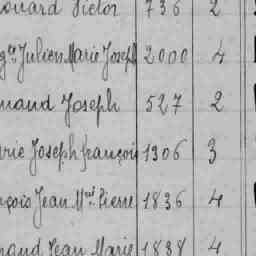 ouard Victor 736 2
Julien Marie Joseph 2000 4
mand Joseph 527 2
rie Joseph François 1306 3
nçois Jean Mie Pierre 1836 4
mand Jean Marie 1838 4